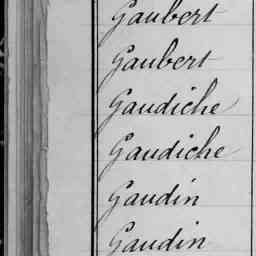 Gaubert
Gaubert
Gaudiche
Gaudiche
Gaudin
Gaudin